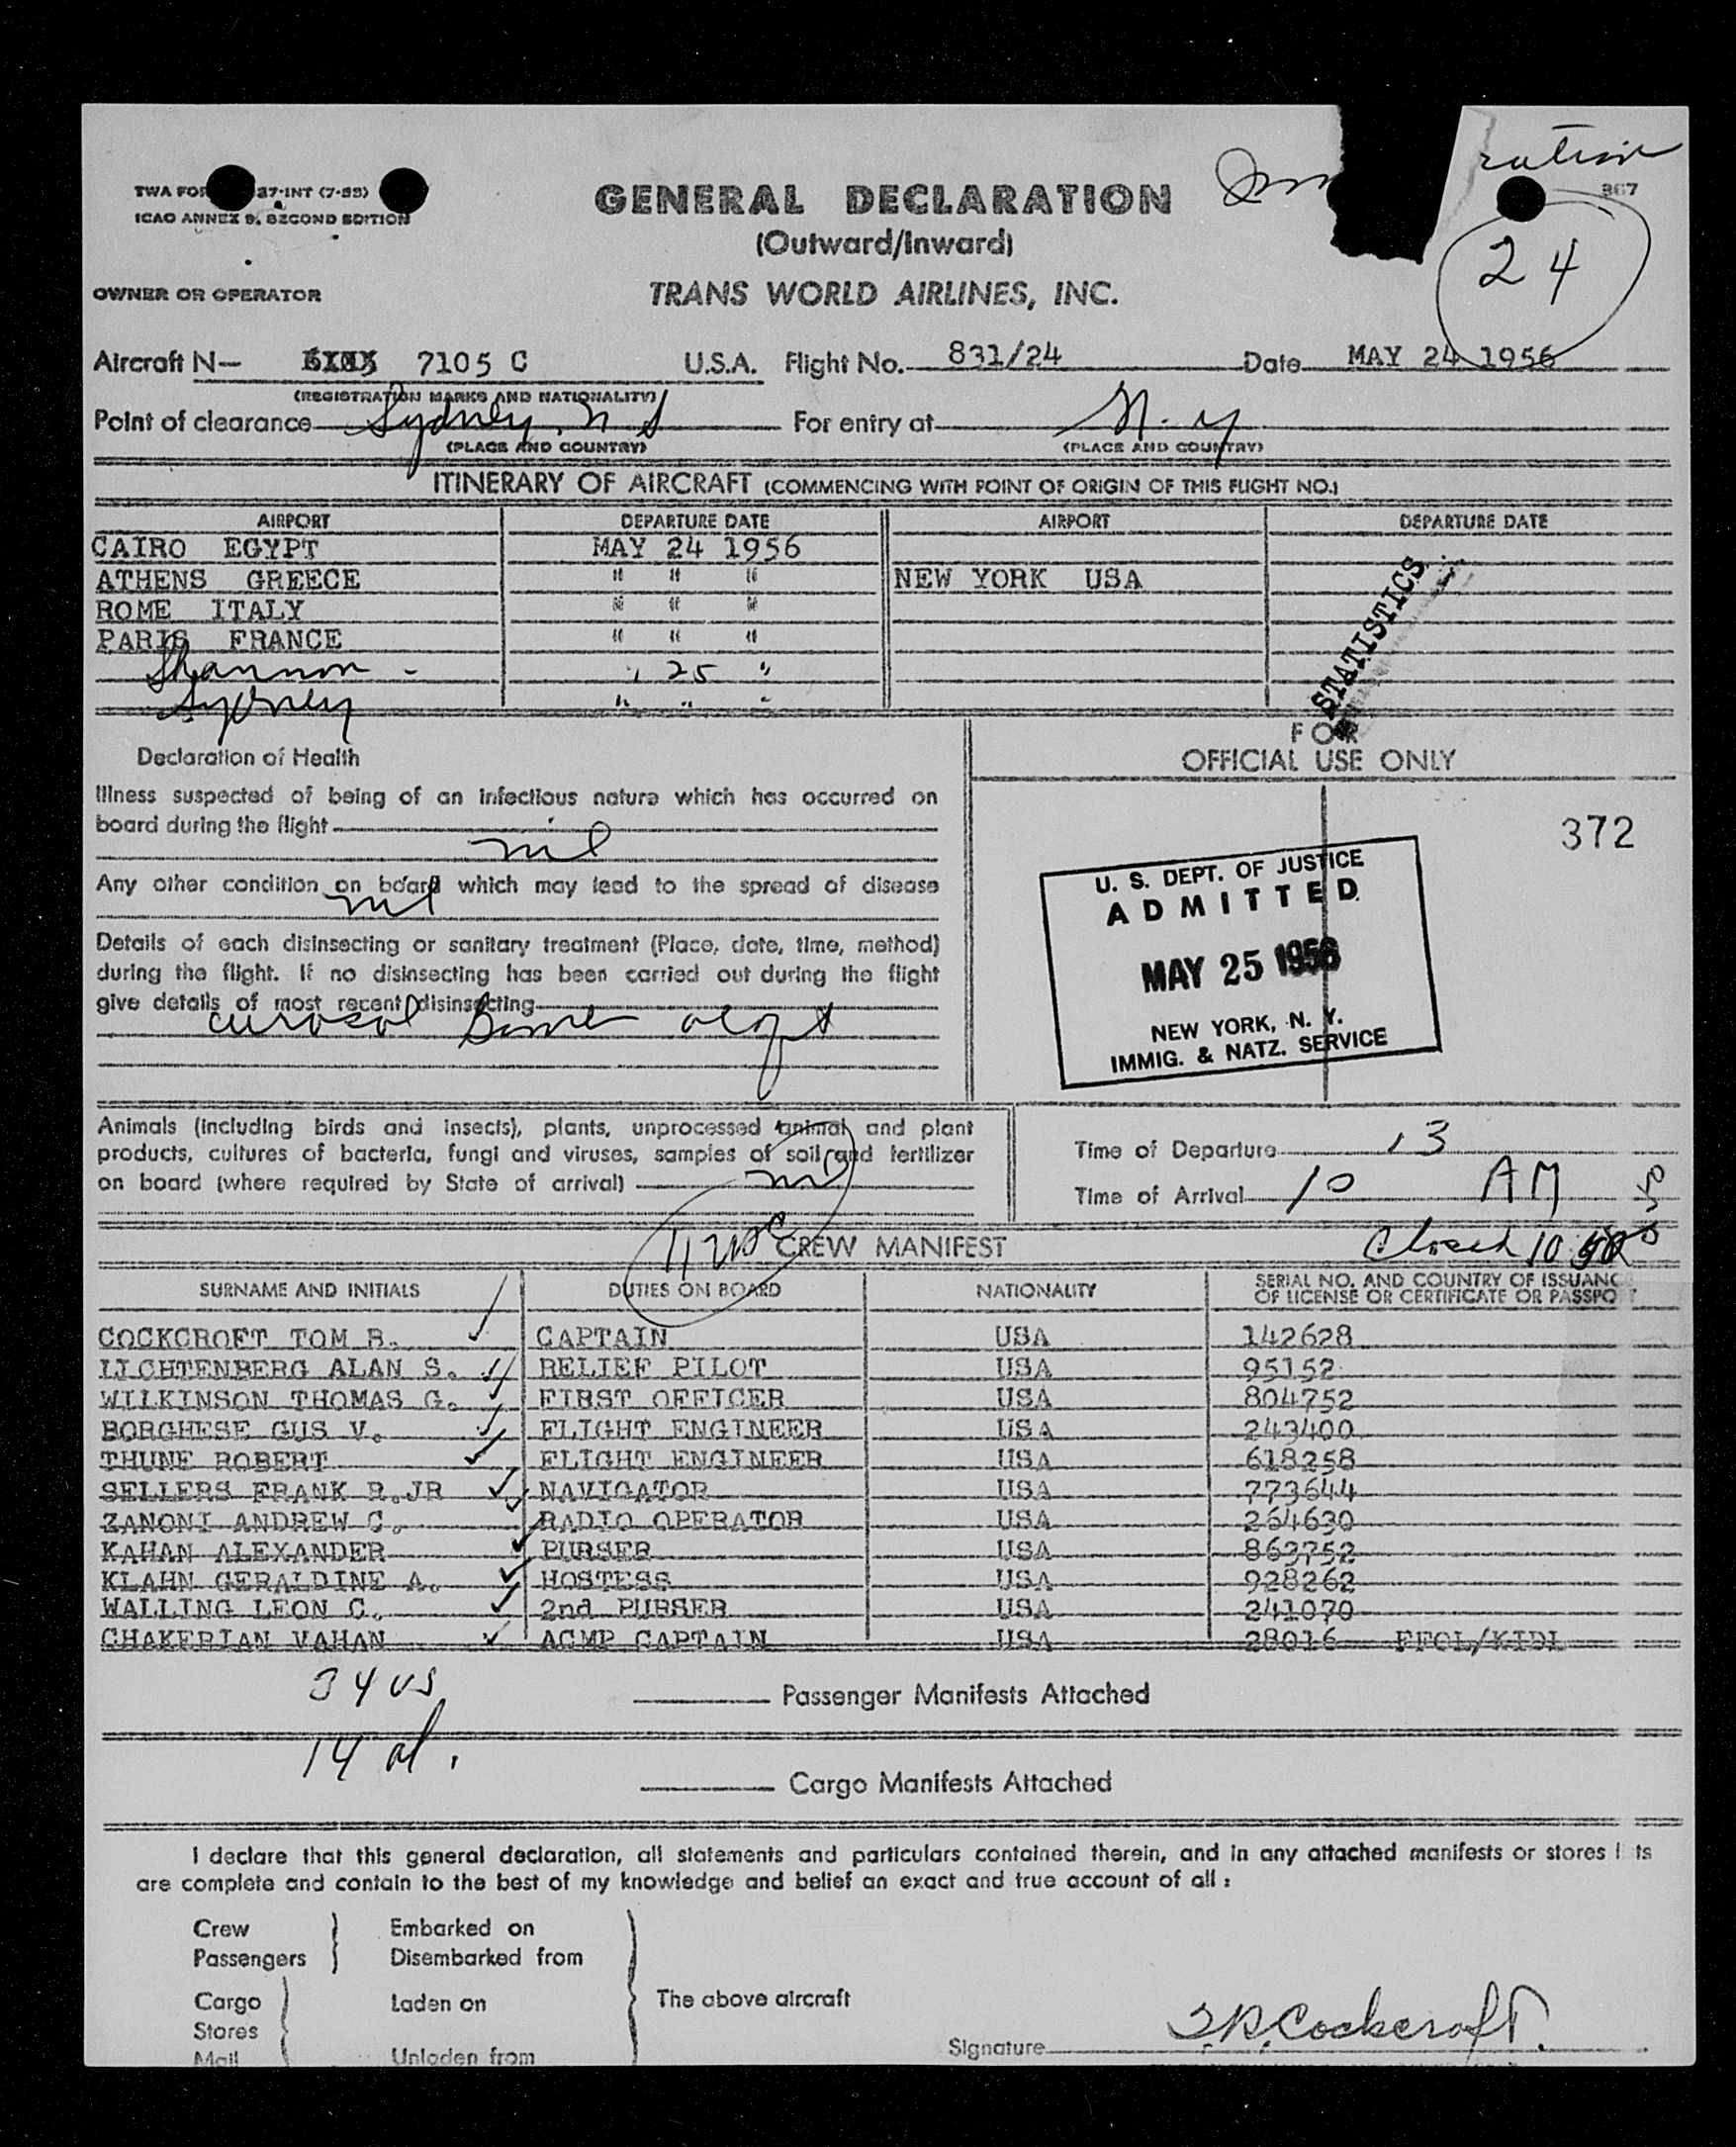 ration
TWA FOR 37-INT (7-53)
ICAO ANNEX 9, SECOND EDITION
GENERAL DECLARATION
367
(Outward/Inward)
24
OWNER OR OPERATOR
TRANS WORLD AIRLINES, INC.
Aircraft N— 7105 C U.S.A. Flight No. 831/24 Date MAY 24 1956
(REGISTRATION MARKS AND NATIONALITY)
Point of clearance Sydney, N S For entry at N. Y
(PLACE AND COUNTRY) (PLACE AND COUNTRY)
ITINERARY OF AIRCRAFT (COMMENCING WITH POINT OF ORIGIN OF THIS FLIGHT NO.)
AIRPORT DEPARTURE DATE AIRPORT DEPARTURE DATE
CAIRO EGYPT MAY 24 1956
ATHENS GREECE " " " NEW YORK USA
ROME ITALY " " "
PARIS FRANCE " " "
Shannon - " 25 "
Sydney " " "
STATISTICS
FOR
OFFICIAL USE ONLY
Declaration of Health
Illness suspected of being of an infectious nature which has occurred on
board during the flight
nil
Any other condition on board which may lead to the spread of disease
nil
Details of each disinsecting or sanitary treatment (Place, date, time, method)
during the flight. If no disinsecting has been carried out during the flight
give details of most recent disinsecting
aerosol Bomb
372
U. S. DEPT. OF JUSTICE
ADMITTED
MAY 25 1956
NEW YORK, N. Y.
IMMIG. & NATZ. SERVICE
Animals (including birds and insects), plants, unprocessed animal and plant
products, cultures of bacteria, fungi and viruses, samples of soil and fertilizer
on board (where required by State of arrival)
nil
Time of Departure 13
Time of Arrival 10 AM
11 usc
CREW MANIFEST
Closed 10
SURNAME AND INITIALS DUTIES ON BOARD NATIONALITY SERIAL NO. AND COUNTRY OF ISSUANC
OF LICENSE OR CERTIFICATE OR PASSPORT
COCKCROFT TOM R. CAPTAIN USA 142628
LICHTENBERG ALAN S. RELIEF PILOT USA 95152
WILKINSON THOMAS G. FIRST OFFICER USA 804752
BORGHESE GUS V. FLIGHT ENGINEER USA 243400
THUNE ROBERT FLIGHT ENGINEER USA 618258
SELLERS FRANK R.JR NAVIGATOR USA 773644
ZANONI ANDREW C. RADIO OPERATOR USA 264630
KAHAN ALEXANDER PURSER USA 863752
KLAHN GERALDINE A. HOSTESS USA 928262
WALLING LEON C. 2nd PURSER USA 241070
CHAKERIAN VAHAN ACMP CAPTAIN USA 28016 FFOL/KIDL
34 us
Passenger Manifests Attached
14 al.
Cargo Manifests Attached
I declare that this general declaration, all statements and particulars contained therein, and in any attached manifests or stores l ts
are complete and contain to the best of my knowledge and belief an exact and true account of all :
Crew Embarked on
Passengers Disembarked from
Cargo Laden on The above aircraft
Stores
Mail Unladen from
Signature T R Cockcroft.